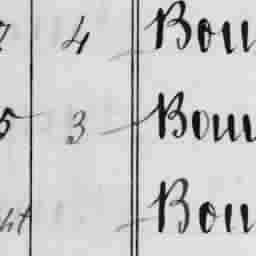 4 Bou
5 3 Bou
ht Bou